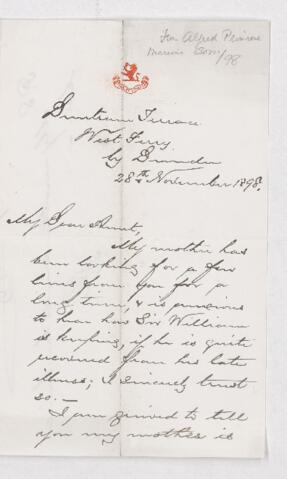 Alfred Primrose
Terrace
West Ferry
by Dundee
28th November 1898.
My Dear Aunt,
My mother has
been looking for a few
lines from you for a
long time, & is anxious
to hear how Sir William
is keeping, if he is quite
recovered from his late
illness; I sincerely trust
so. —
I am grieved to tell
you my mother is